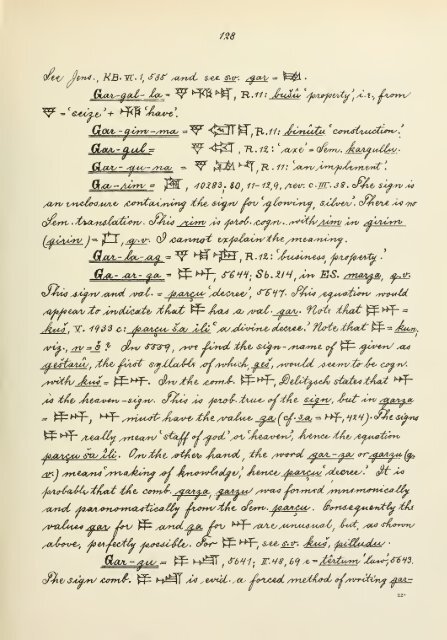 128
See Jens., KB. VI. 1, 535 and see s.v. gar = 
Gar-gal-la = , R. 11: bušû 'property', i.e., from
= 'seize' + 'have'.
Gar-gim-ma = , R. 11: binûtu 'construction'.
Gar-gul = , R. 12: 'axe' = Sem. kargullu.
Gar-gu-na = , R. 11: 'an implement'.
Ga-rim = , 10283. 80, 11-12, 9, rev. c. III. 38. The sign is
an enclosure containing the sign for 'glowing, silver'. There is no
Sem. translation. This rim is prob. cogn. with rim in girim
(girin) = , q.v. I cannot explain the meaning.
Gar-la-ag = , R. 12: 'business, property.'
Ga-ar-ga = , 5644, Sb. 214, in ES. marza, q.v.
This sign and val. = parçu 'decree', 5647. This equation would
appear to indicate that has a val. gar. Note that =
kuš, V. 1933 c: parçu ša ili 'a divine decree'. Note that = kun,
viz., n = š? In 5559, we find the sign-name of given as
geštarû, the first syllable of which, geš, would seem to be cogn.
with kuš = . In the comb. , Delitzsch states that
is the heaven-sign. This is prob. true of the sign, but in garza
= , must have the value za (cf. sa = , 424). The signs
really mean 'staff of god' or 'heaven', hence the equation
parçu ša ili. On the other hand, the word gar-za or garzu (q.
v.) means 'making of knowledge', hence parçu 'decree.' It is
probable that the comb. garza, garzu was formed mnemonically
and paronomastically from the Sem. parçu. Consequently the
values gar for and za for are unusual, but, as shown
above, perfectly possible. For , see s.v. kuš, pilludu.
Gar-zu = , 5641, II. 48, 69 e = têrtum 'law', 5643.
The sign comb. is evid. a forced method of writing gar-